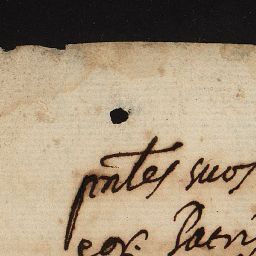 pntes suos
eor. Patri